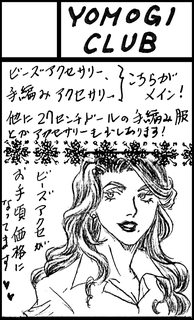 YOMOGI
CLUB
ビーズアクセサリー、
手編みアクセサリー
こちらが
メイン!
他に27センチドールの手編み服
とかアクセサリーも少しあります!
ビーズアクセが
お手頃価格に
なってます♥♥